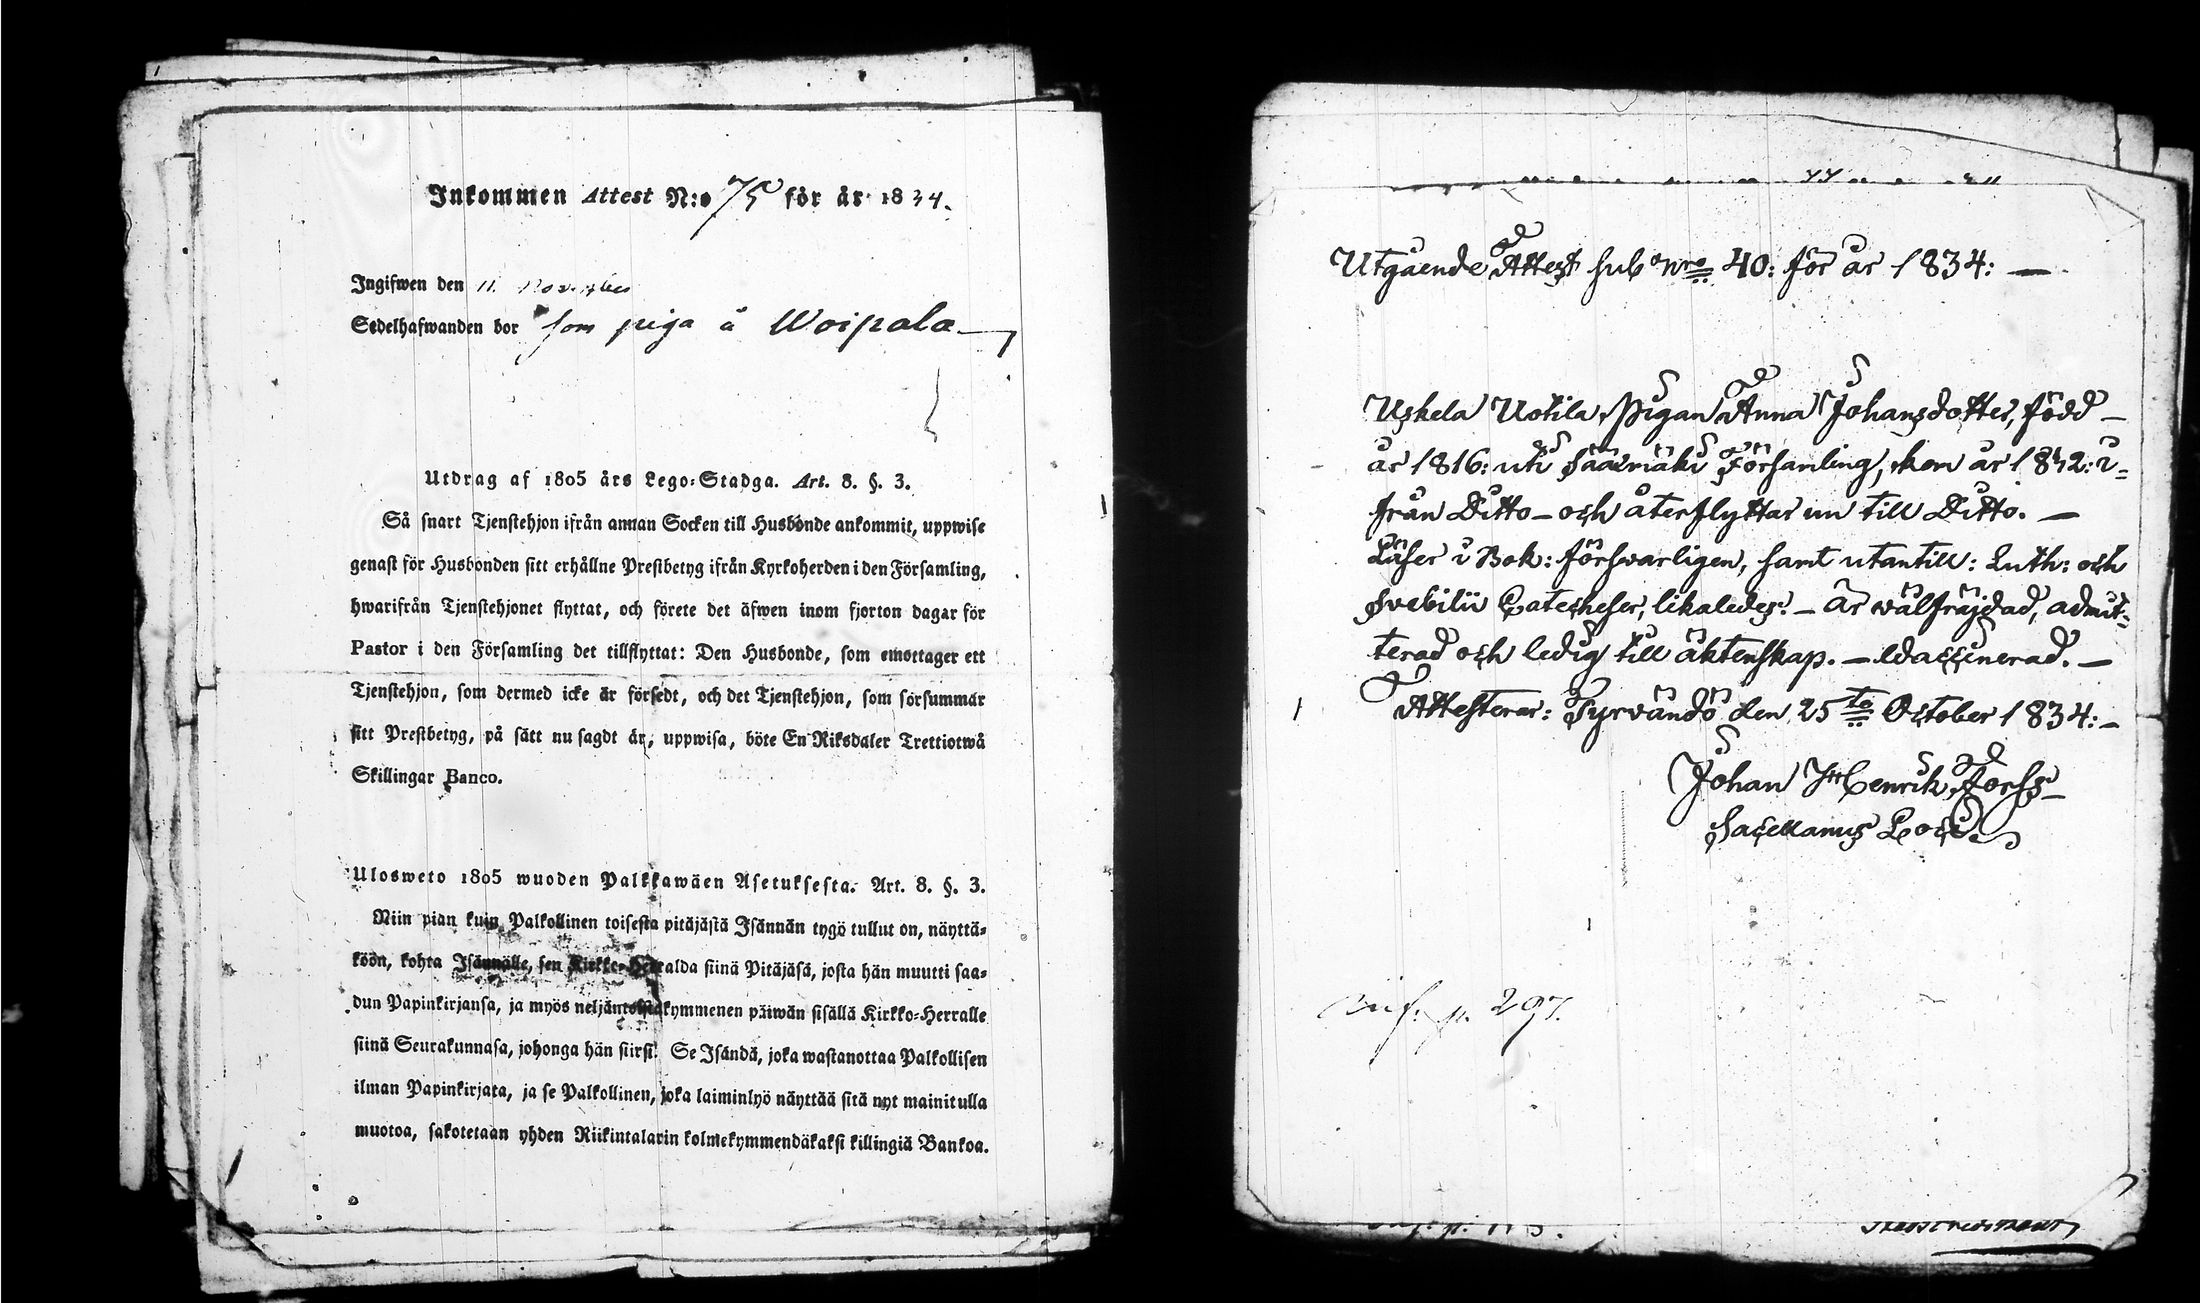 Inkommen Attest N:o 75 för år 1834.
Ingifwen den 11. November
Sedelhafwanden bor som piga å Woipala
Utdrag af 1805 års Lego-Stadga. Art. 8. §. 3.
Så snart Tjenstehjon ifrån annan Socken till Husbonde ankommit, uppwise
genast för Husbonden sitt erhållne Prestbetyg ifrån Kyrkoherden i den Församling,
hwarifrån Tjenstehjonet flyttat, och förete det äfwen inom fjorton dagar för
Pastor i den Församling det tillflyttat: Den Husbonde, som emottager ett
Tjenstehjon, som dermed icke är försedt, och det Tjenstehjon, som försummar
sitt Prestbetyg, på sätt nu sagdt är, uppwisa, böte En Riksdaler Trettiotwå
Skillingar Banco.
Ulosweto 1805 wuoden Palkkawäen Asetuksesta. Art. 8. §. 3.
Niin pian kuin Palkollinen toisesta pitäjästä Isännän tygö tullut on, näyttä-
köön, kohta Isännälle, sen Kirkko-Herralda siinä Pitäjäsä, josta hän muutti saa-
dun Papinkirjansa, ja myös neljäntoistakymmenen päiwän sisällä Kirkko-Herralle
siinä Seurakunnasa, johonga hän siirsi. Se Isändä, joka wastanottaa Palkollisen
ilman Papinkirjata, ja se Palkollinen, joka laiminlyö näyttää sitä nyt mainitulla
muotoa, sakotetaan yhden Riikintalarin kolmekymmendäkaksi killingiä Bankoa.
Utgående Attest sub Nro 40: för år 1834: —
Uskela Uotila Pigan Anna Johansdotter, född —
år 1816: uti Sääxmäki Församling, kom år 1832: i-
från Ditto — och återflyttar nu till Ditto. —
Läser i Bok: försvarligen, samt utantill: Luth: och
Svebilii Catecheser, likaledes. — Är wälfräjdad, admit-
terad och ledig till äktenskap. — Vaccinerad. —
Attesterar: Tyrvändö den 25to October 1834: —
Johan Henrik Forss
Sacellanus Loci.
Inf. p. 297.